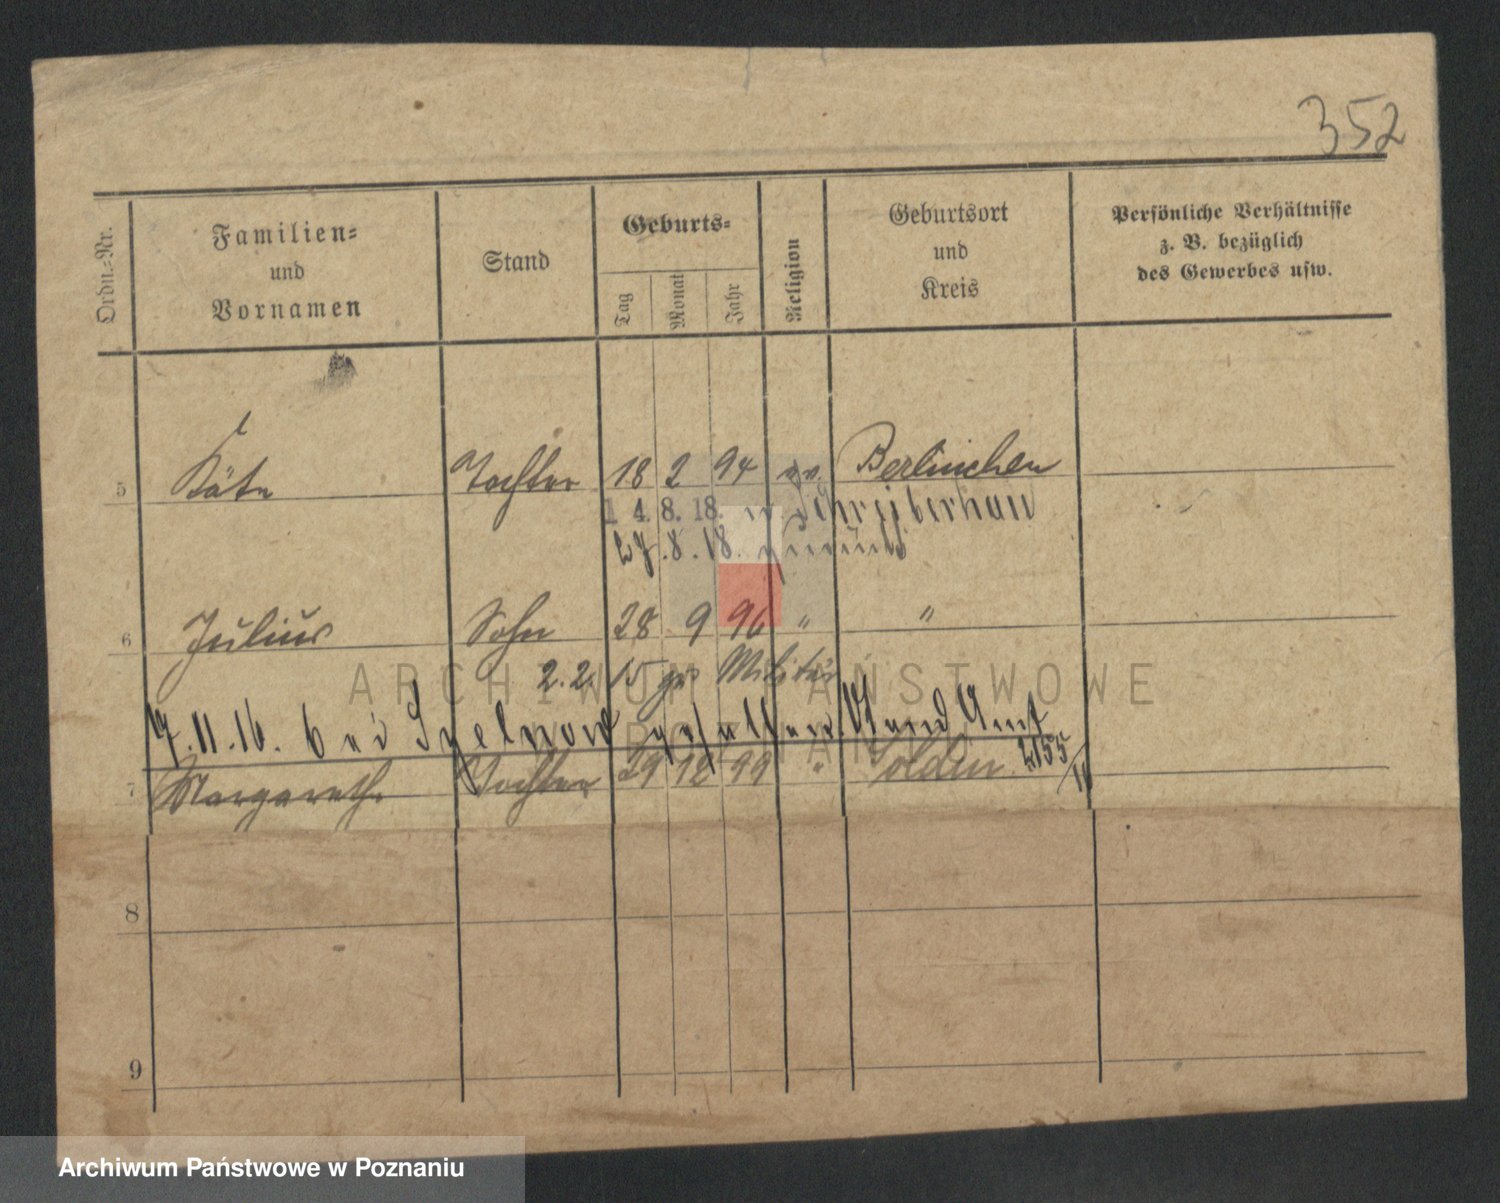 352
Ordn.-Nr.
Familien-
und
Vornamen
Stand
Geburts-
Tag
Monat
Jahr
Religion
Geburtsort
und
Kreis
Persönliche Verhältnisse
z. B. bezüglich
des Gewerbes usw.
5 Käte Tochter 18 2 94 ev. Berlinchen
14. 8. 18. in Schreiberhau
27. 8. 18.
6 Julius Sohn 28 9 96 " "
2. 2. 15 zus Militär
17. 11. 16. bei gefallen Stand Amt
2155
7 Margarethe Tochter 29 12 99 " Soldin
8
9
ARCHIWUM PAŃSTWOWE
W POZNANIU
Archiwum Państwowe w Poznaniu